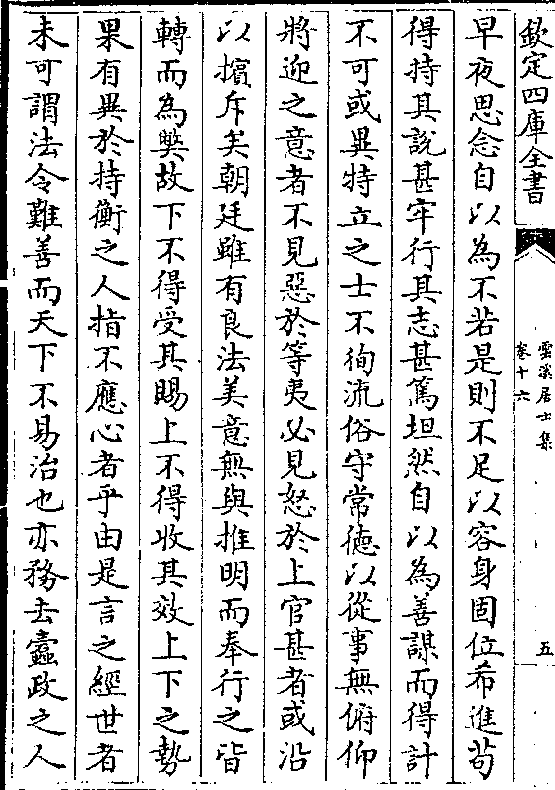 欽定四庫全書
雲溪居士集
卷十六
五
早夜思念自以為不若是則不足以容身固位希進苟
得持其說甚牢行其志甚篤坦然自以為善謀而得計
不可或異特立之士不徇流俗守常德以從事無俯仰
將迎之意者不見惡於等夷必見怒於上官甚者或沿
以擯斥矣朝廷雖有良法美意無與推明而奉行之皆
轉而為弊故下不得受其賜上不得收其效上下之勢
果有異於持衡之人指不應心者乎由是言之經世者
未可謂法令難善而天下不易治也亦務去蠹政之人